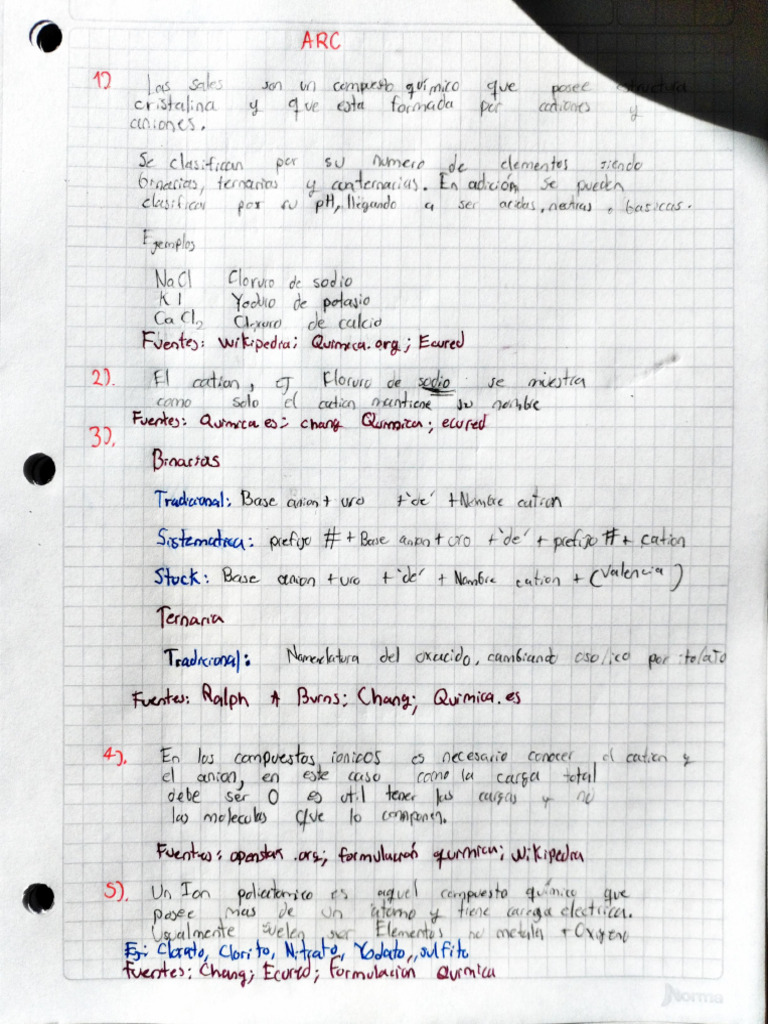 ARC
1) Las sales son un compuesto químico que posee estructura
cristalina y que esta formada por cationes y
aniones.
Se clasifican por su numero de elementos siendo
binarias, ternarias y cuaternarias. En adición se pueden
clasificar por su pH, llegando a ser acidas, neutras o basicas.
Ejemplos
NaCl Cloruro de sodio
KI Yoduro de potasio
CaCl2 Cloruro de calcio
Fuentes: Wikipedia; Quimica.org; Ecured
2). El cation, ej Floruro de sodio se muestra
como solo el cation mantiene su nombre
Fuentes: Quimica.es; Chang Quimica; ecured
3).
Binarias
Tradicional: Base anion + uro + 'de' + Nombre cation
Sistematica: prefijo # + Base anion + uro + 'de' + prefijo # + cation
Stock: Base anion + uro + 'de' + Nombre cation + (Valencia)
Ternaria
Tradicional: Nomenclatura del oxacido, cambiando oso/ico por ito/ato
Fuentes: Ralph A Burns; Chang; Quimica.es
4). En los compuestos ionicos es necesario conocer el cation y
el anion, en este caso como la carga total
debe ser 0 es util tener las cargas y no
las moleculas que lo componen.
Fuentes: openstax.org; formulación quimica; Wikipedia
5). Un Ion poliatomico es aquel compuesto químico que
posee mas de un átomo y tiene carga electrica.
Usualmente suelen ser Elementos no metales + Oxigeno
Ej: Clorato, Clorito, Nitrato, Yodato, sulfito
Fuentes: Chang; Ecured; Formulacion Quimica
Norma